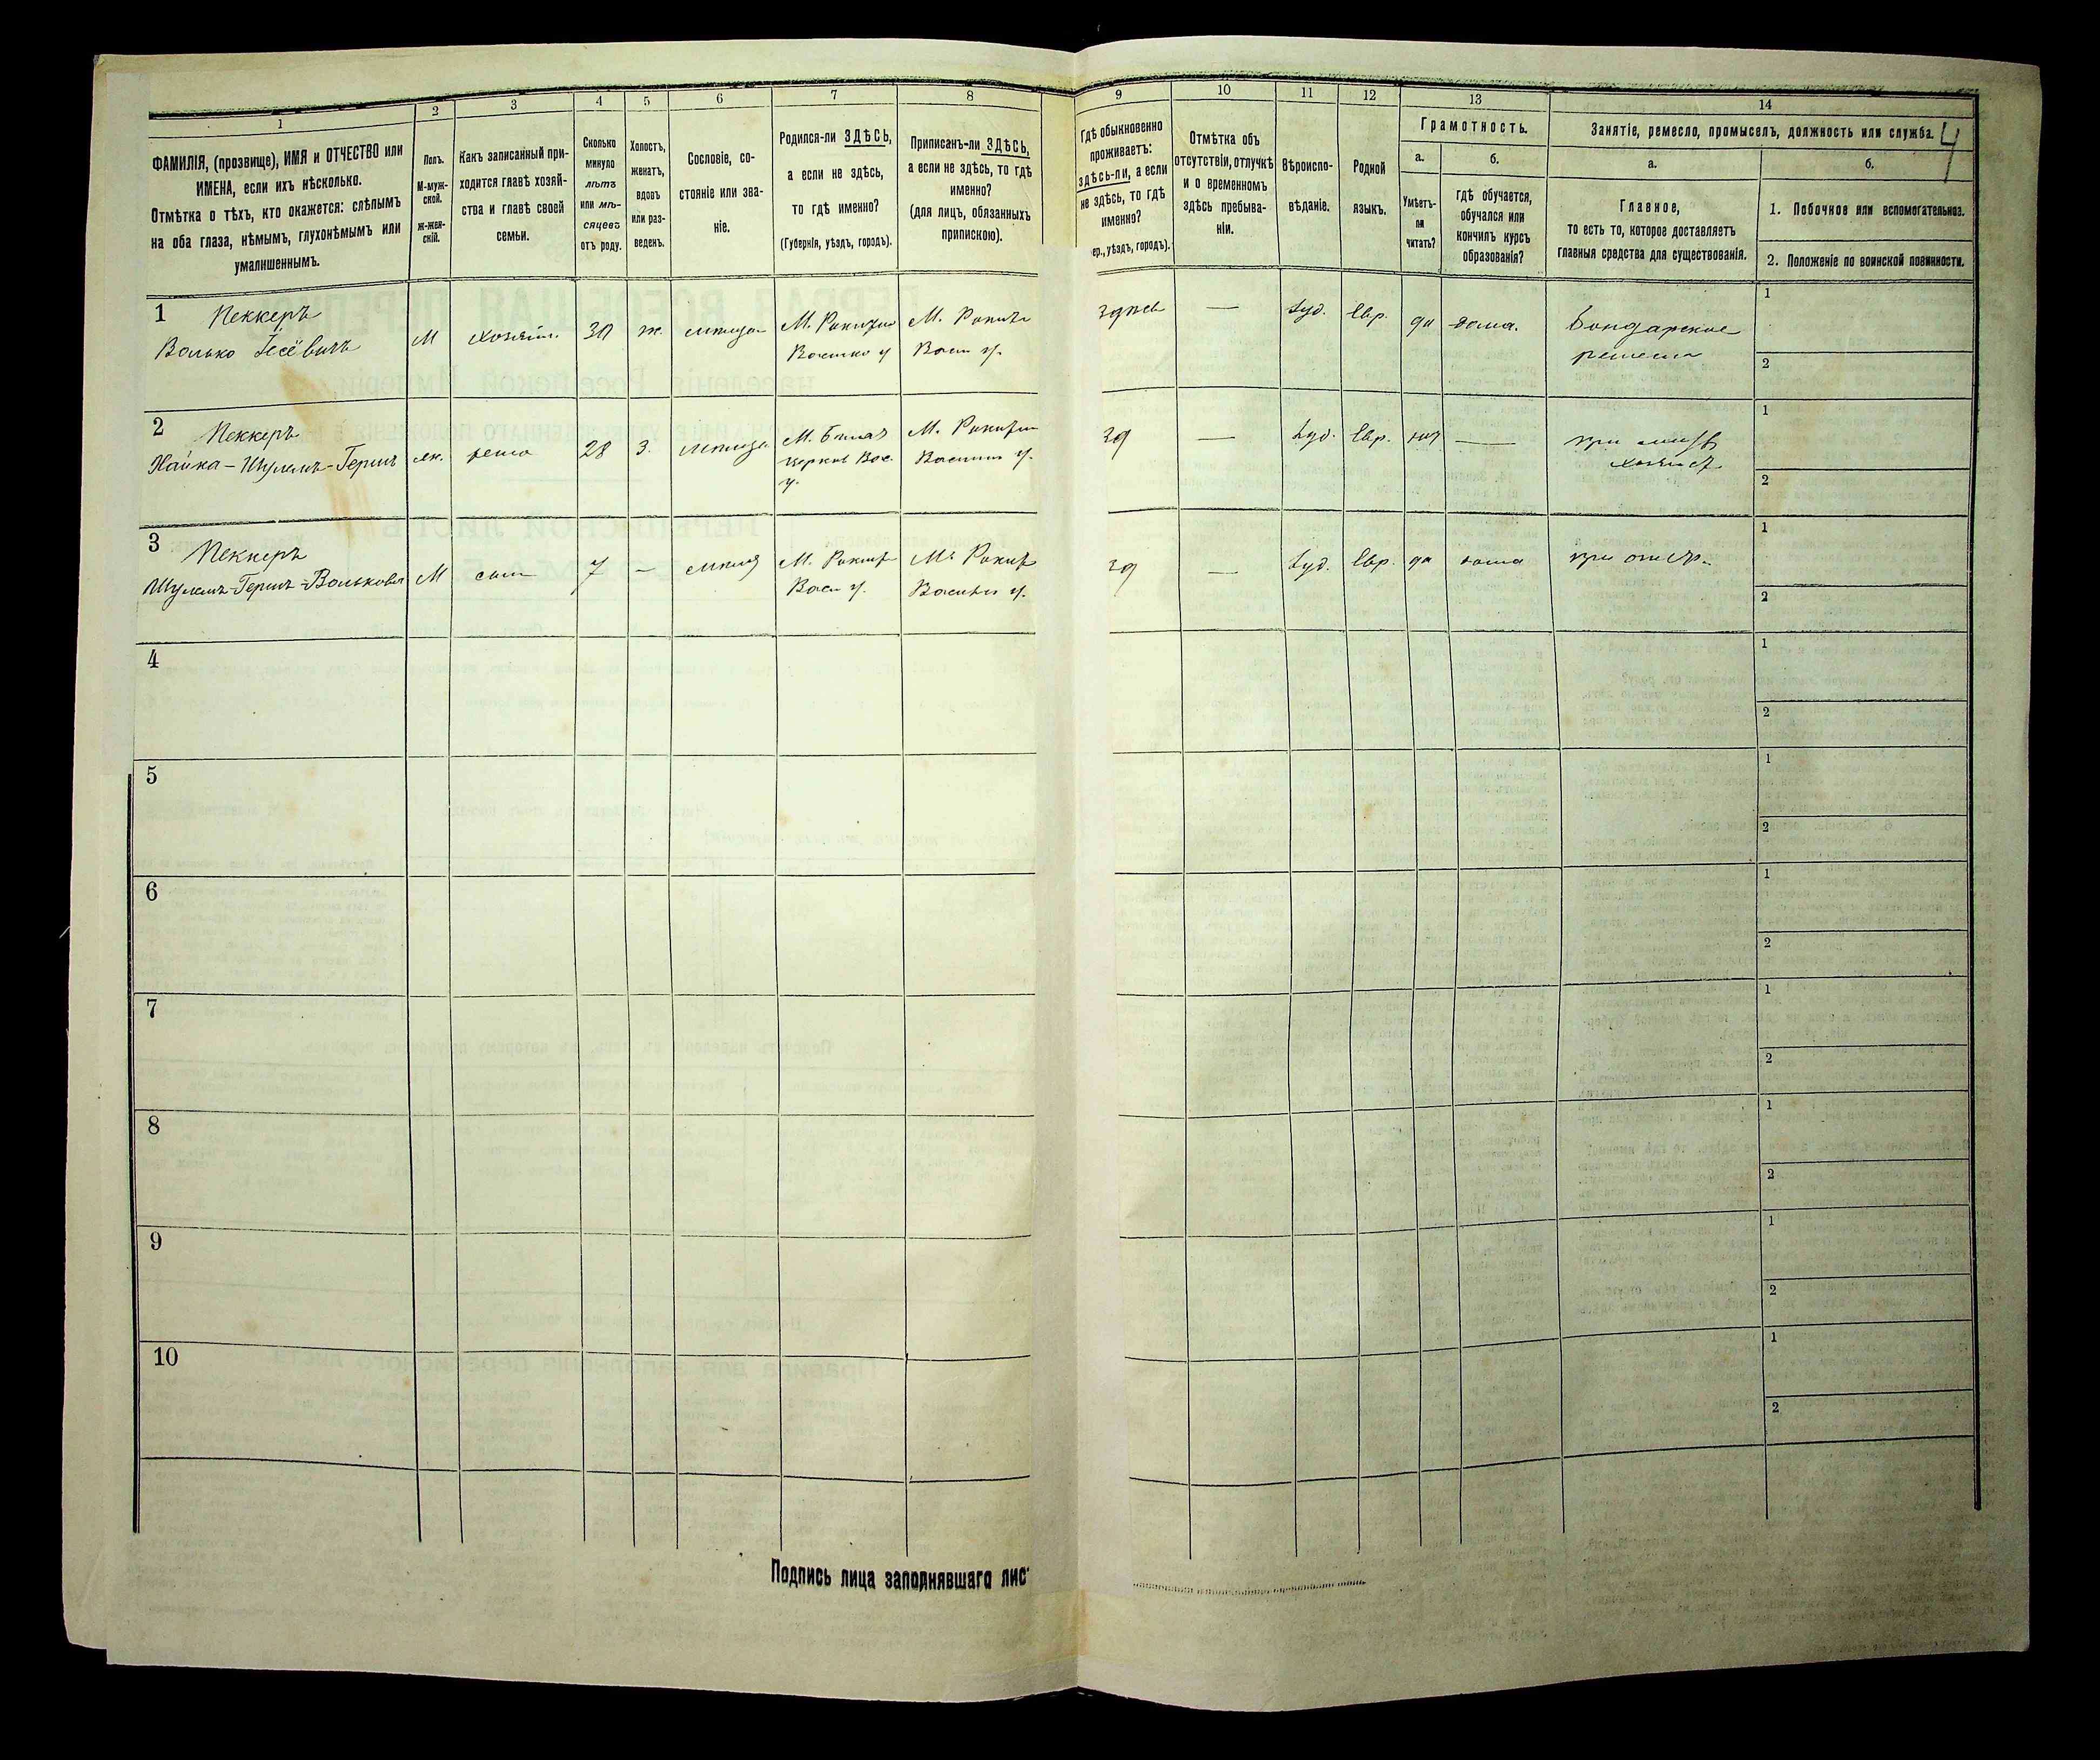 1
2
3
4
5
6
7
8
ФАМИЛІЯ, (прозвище), ИМЯ и ОТЧЕСТВО или
ИМЕНА, если ихъ нѣсколько.
Отмѣтка о тѣхъ, кто окажется: слѣпымъ
на оба глаза, нѣмымъ, глухонѣмымъ или
умалишеннымъ.
Полъ.
М-муж-
ской.
ж-жен-
скій.
Какъ записанный при-
ходится главѣ хозяй-
ства и главѣ своей
семьи.
Сколько
минуло
лѣтъ
или мѣ-
сяцевъ
отъ роду.
Холостъ,
женатъ,
вдовъ
или раз-
веденъ.
Сословіе, со-
стояніе или зва-
ніе.
Родился-ли ЗДѢСЬ,
а если не здѣсь,
то гдѣ именно?
(Губернія, уѣздъ, городъ).
Приписанъ-ли ЗДѢСЬ,
а если не здѣсь, то гдѣ
именно?
(для лицъ, обязанныхъ
припискою).
1
Пеккеръ
Волько Іосевичъ
М
хозяин.
30
ж.
М.
М.
2
Пеккеръ
Хайка-Шулемъ-Герш
жена
28
з.
М.
М.
3
Пеккеръ
Шулемъ-Гершъ-Волькович
М
сын
7
—
М. Рокит
М. Рокит
4
5
6
7
8
9
10
Подпись лица заполнявшаго лис
9
10
11
12
13
14
Гдѣ обыкновенно
проживаетъ:
здѣсь-ли, а если
не здѣсь, то гдѣ
именно?
ер., уѣздъ, городъ).
Отмѣтка объ
отсутствіи, отлучкѣ
и о временномъ
здѣсь пребыва-
ніи.
Вѣроиспо-
вѣданіе.
Родной
языкъ.
Грамотность.
а.
Умѣетъ-
ли
читать?
б.
гдѣ обучается,
обучался или
кончилъ курсъ
образованія?
Занятіе, ремесло, промыселъ, должность или служба.
4
а.
Главное,
то есть то, которое доставляетъ
главныя средства для существованія.
б.
1. Побочное или вспомогательное.
2. Положеніе по воинской повинности.
здесь
—
Іуд.
Евр.
да
дома.
Бондарское
1
2
зд
—
Іуд.
Евр.
—
при
1
2
зд
—
Іуд.
Евр.
да
дома
при
1
2
1
2
1
2
1
2
1
2
1
2
1
2
1
2